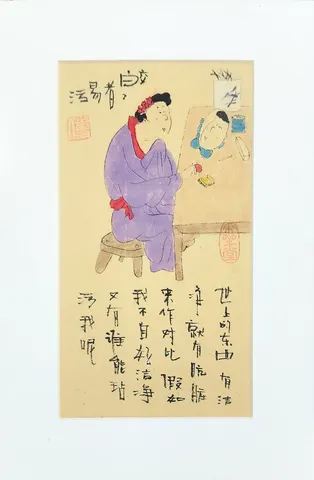 皎々者易污
世上的东西有洁
净就有肮脏
来作对比 假如
我不自洁净
又有谁能玷
污我呢